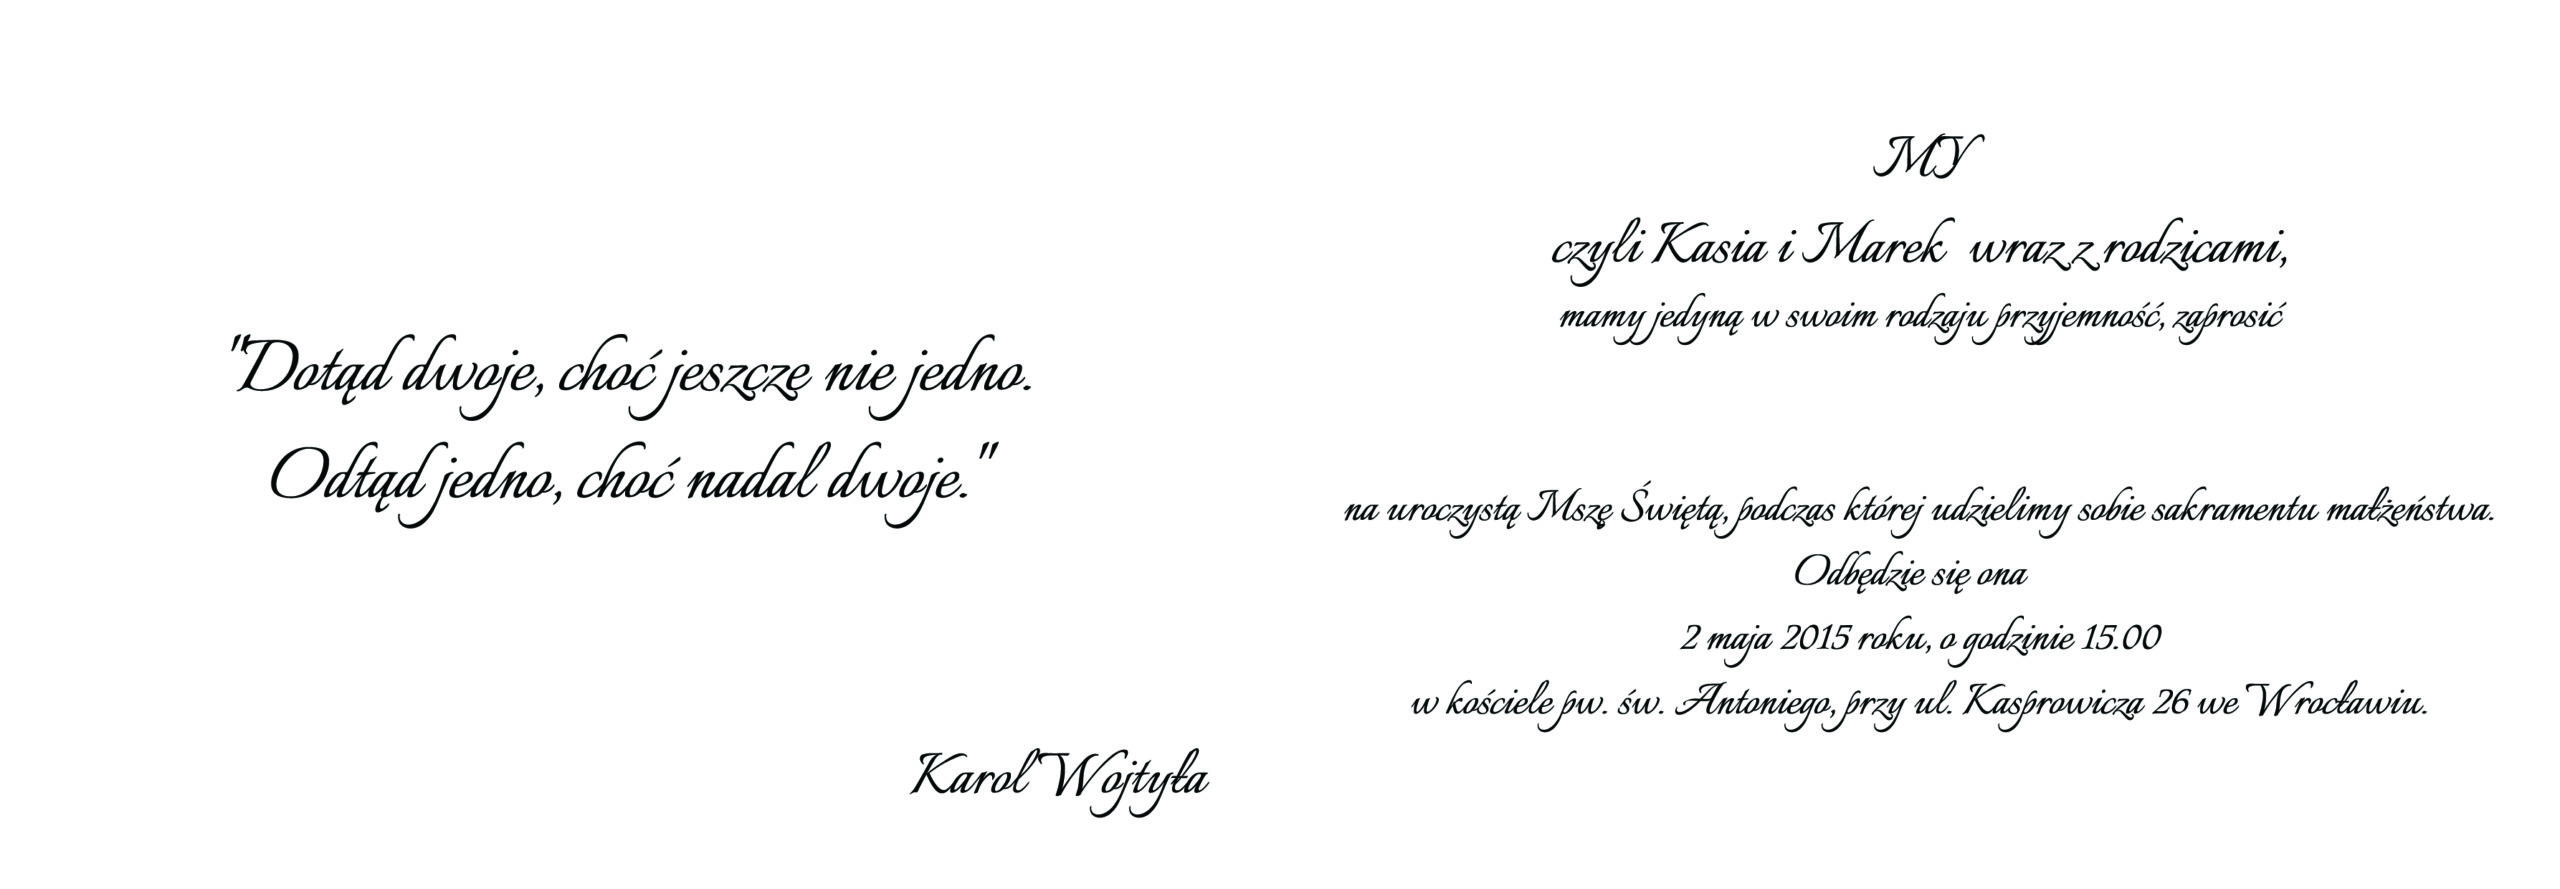 "Dotąd dwoje, choć jeszcze nie jedno.
Odtąd jedno, choć nadal dwoje."
Karol Wojtyła
MY
czyli Kasia i Marek wraz z rodzicami,
mamy jedyną w swoim rodzaju przyjemność, zaprosić
na uroczystą Mszę Świętą, podczas której udzielimy sobie sakramentu małżeństwa.
Odbędzie się ona
2 maja 2015 roku, o godzinie 15.00
w kościele pw. św. Antoniego, przy ul. Kasprowicza 26 we Wrocławiu.